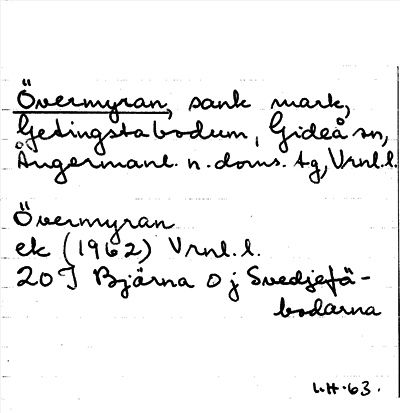 Övermyran, sank mark,
Getingstabodum, Gideå sn,
Ångermanl. n. doms. tg, Vrnl.l.
Övermyran
ek (1962) Vrnl.l.
20J Bjärna Oj Svedjefä-
bodarna
L.H. 63.